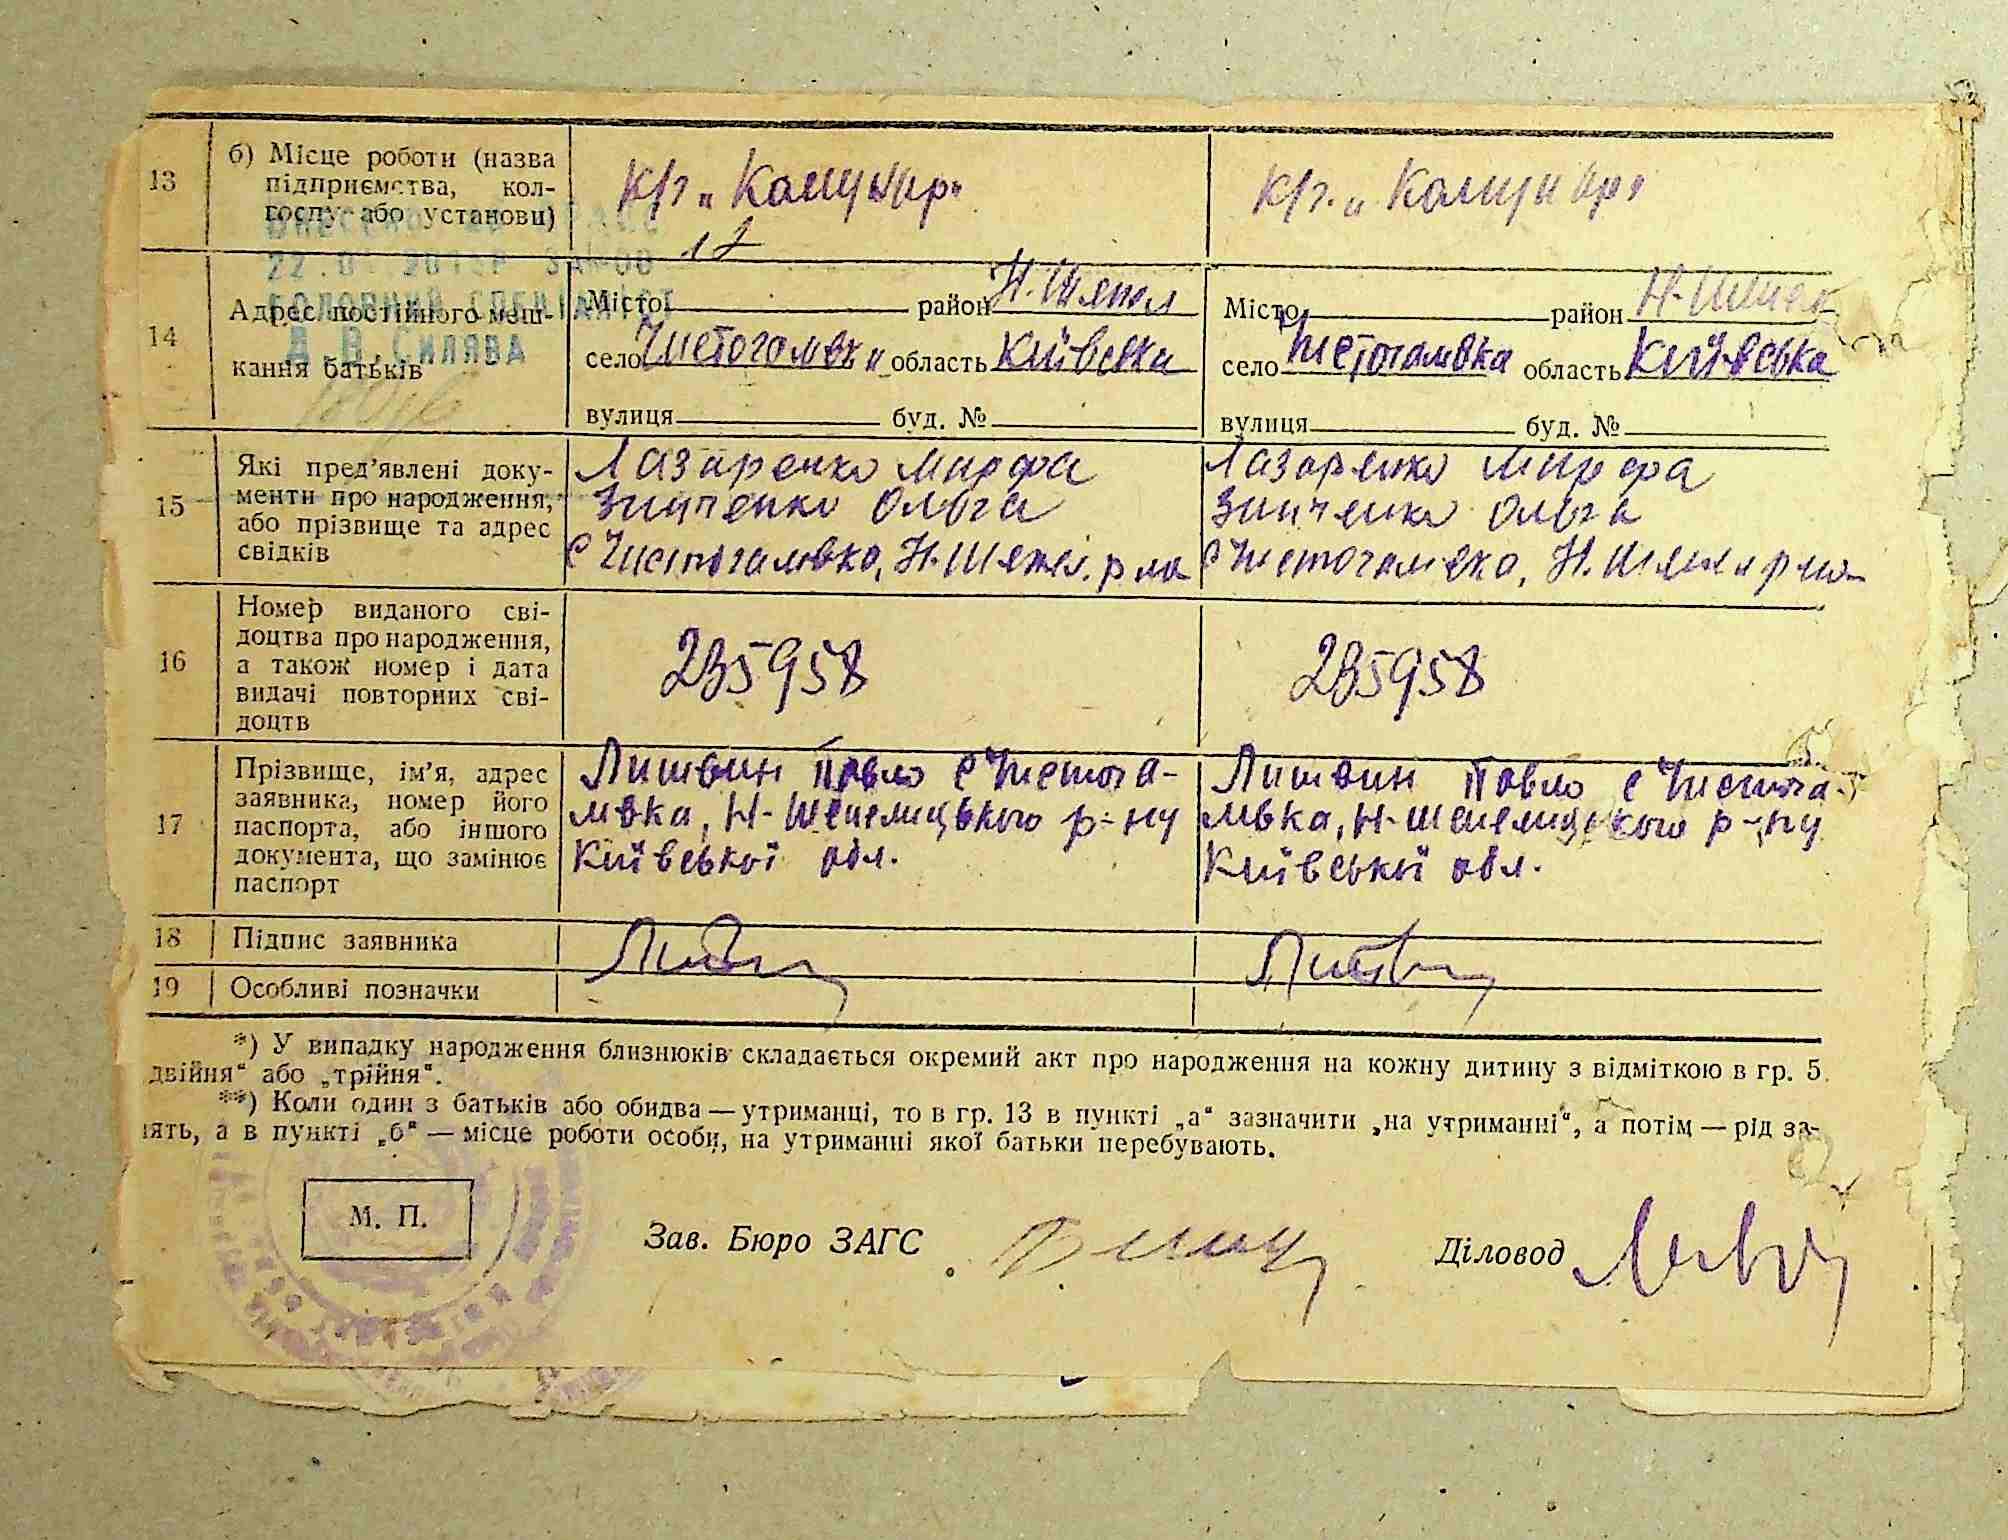 13
б) Місце роботи (назва
підприємства, кол-
госпу або установи)
к/г „Комунар"
к/г. „Комунар"
17
14
Адрес постійного меш-
кання батьків
ГОЛОВНИЙ СПЕЦІАЛІСТ
СИЛЯВА
Місто район Н. Шепел
село Чистогалівка область Київська
вулиця буд. №
Місто район Н-Шепел
село Чистогалівка область Київська
вулиця буд. №
15
Які пред'явлені доку-
менти про народження,
або прізвище та адрес
свідків
Лазаренко Марфа
Зинченко Ольга
с Чистогалівка, Н. Шепел. р на
Лазаренко Марфа
Зинченко Ольга
с Чистогалівка, Н. Шепел р на
16
Номер виданого сві-
доцтва про народження,
а також номер і дата
видачі повторних сві-
доцтв
235958
235958
17
Прізвище, ім'я, адрес
заявника, номер його
паспорта, або іншого
документа, що замінює
паспорт
Литвин Павло с Чистога-
лівка, Н-Шепелицького р-ну
Київської обл.
Литвин Павло с Чистога-
лівка, Н-Шепелицького р-ну
Київської обл.
18
Підпис заявника
Литвин
19
Особливі позначки
*) У випадку народження близнюків складається окремий акт про народження на кожну дитину з відміткою в гр. 5
двійня" або „трійня".
**) Коли один з батьків або обидва — утриманці, то в гр. 13 в пункті „а" зазначити „на утриманні", а потім — рід за-
нять, а в пункті „б" — місце роботи особи, на утриманні якої батьки перебувають.
М. П.
Зав. Бюро ЗАГС
Діловод